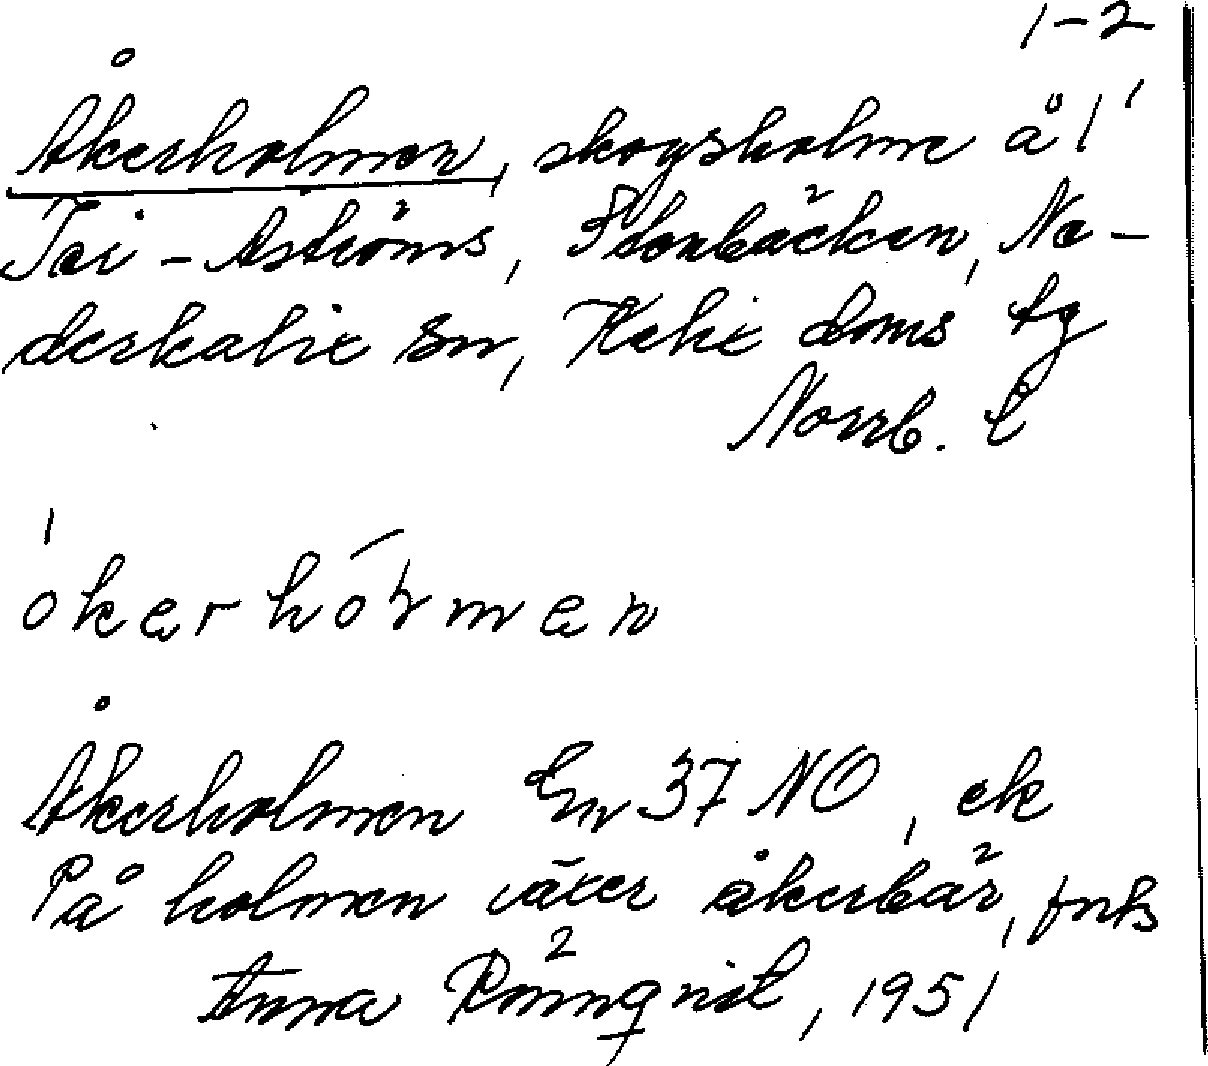 1-2
Åkerholmen, skogsholme å 1'
Jär-Åströms, Storbäcken, Ne-
derkalix sn, Kalix doms tg
Norrb. l
ókerhólmen
Åkerholmen Em 37 NO, ek
På holmen växer åkerbär, fnts
Anna Rönnqvist, 1951